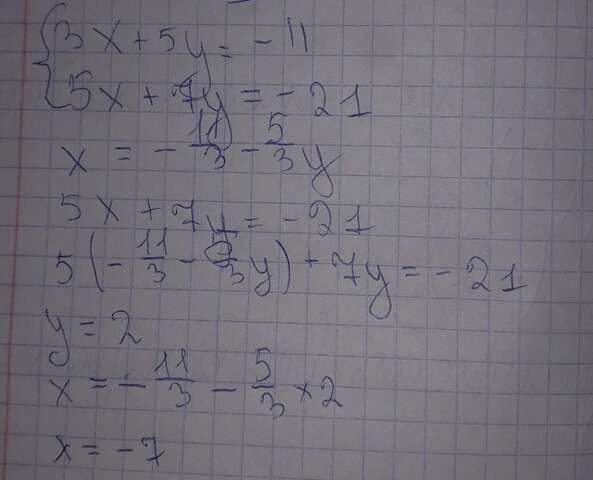 {3x+5y=-11
5x+7y=-21
x=-11/3-5/3y
5x+7y=-21
5(-11/3-5/3y)+7y=-21
y=2
x=-11/3-5/3×2
x=-7